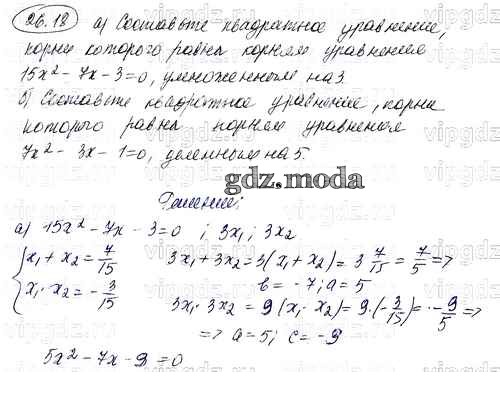 26.18 а) Составьте квадратное уравнение,
корни которого равны корням уравнения
15x² - 7x - 3 = 0, умноженным на 3.
б) Составьте квадратное уравнение, корни
которого равны корням уравнения
7x² - 3x - 1 = 0, деленным на 5.
gdz.moda
Решение:
а) 15x² - 7x - 3 = 0 ; 3x₁ ; 3x₂
x₁ + x₂ = 7/15 3x₁ + 3x₂ = 3(x₁ + x₂) = 3 7/15 = 7/5 =>
b = -7; a = 5
x₁ · x₂ = -3/15 3x₁ · 3x₂ = 9(x₁ · x₂) = 9 · (-3/15) = -9/5 =>
=> a = 5; c = -9
5x² - 7x - 9 = 0
vipgdz.ru